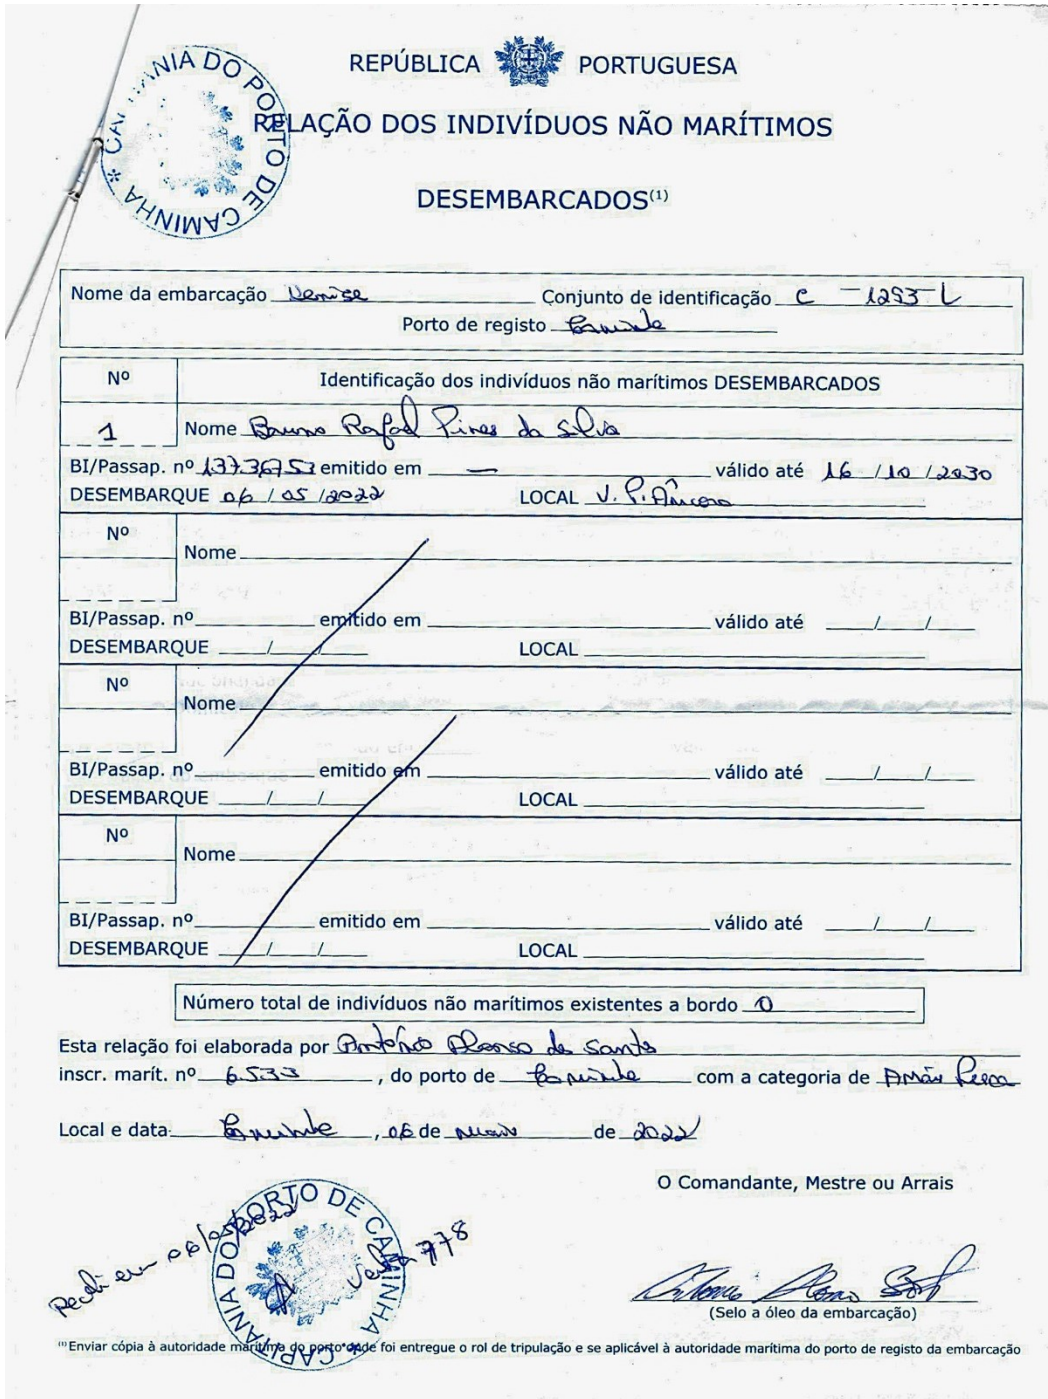 REPÚBLICA PORTUGUESA
RELAÇÃO DOS INDIVÍDUOS NÃO MARÍTIMOS
DESEMBARCADOS⁽¹⁾
CAPITANIA DO PORTO DE CAMINHA *
Nome da embarcação Conjunto de identificação C - 1293 - L
Porto de registo Caminha
Nº Identificação dos indivíduos não marítimos DESEMBARCADOS
1 Nome Bruno Rafael Pires da Silva
BI/Passap. nº 13736753 emitido em — válido até 16 / 10 / 2030
DESEMBARQUE 06 / 05 / 2022 LOCAL V. P. Âncora
Nº
Nome
BI/Passap. nº emitido em válido até / /
DESEMBARQUE / / LOCAL
Nº
Nome
BI/Passap. nº emitido em válido até / /
DESEMBARQUE / / LOCAL
Nº
Nome
BI/Passap. nº emitido em válido até / /
DESEMBARQUE / / LOCAL
Número total de indivíduos não marítimos existentes a bordo 0
Esta relação foi elaborada por António Afonso do Santo
inscr. marít. nº 6.533 , do porto de Caminha com a categoria de Pesca
Local e data Caminha , 06 de maio de 2022
O Comandante, Mestre ou Arrais
Recebi em 06/05/2022
778
CAPITANIA DO PORTO DE CAMINHA
(Selo a óleo da embarcação)
⁽¹⁾ Enviar cópia à autoridade marítima do porto onde foi entregue o rol de tripulação e se aplicável à autoridade marítima do porto de registo da embarcação